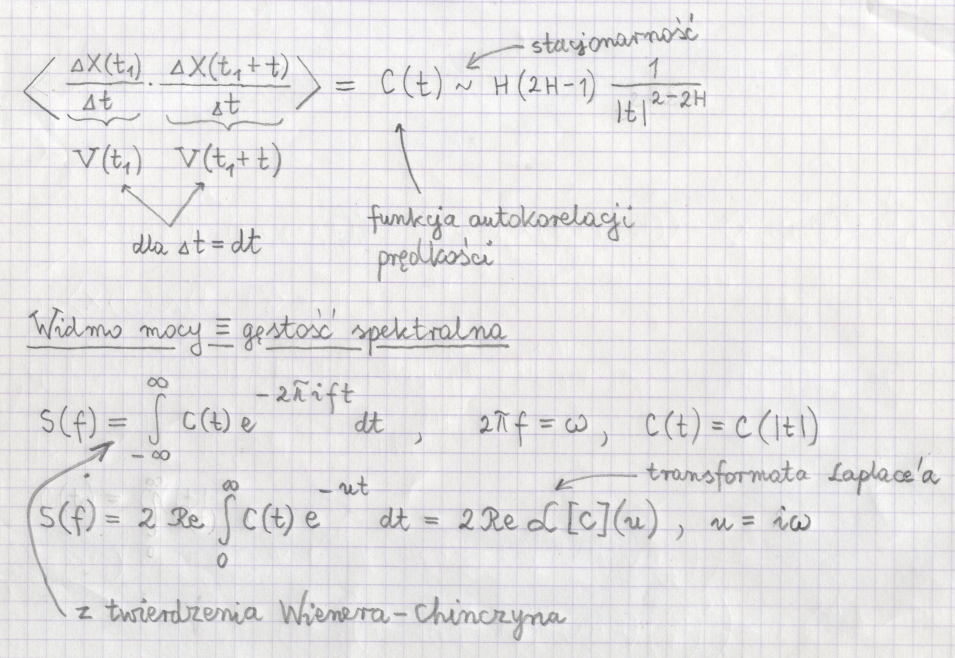 stacjonarność
⟨ ΔX(t₁)/Δt · ΔX(t₁+t)/Δt ⟩ = C(t) ~ H(2H-1) 1/|t|^{2-2H}
V(t₁) V(t₁+t)
dla Δt = dt
funkcja autokorelacji
prędkości
Widmo mocy ≡ gęstość spektralna
S(f) = ∫_{-∞}^{∞} C(t) e^{-2πift} dt , 2πf = ω , C(t) = C(|t|)
transformata Laplace'a
S(f) = 2 Re ∫_0^∞ C(t) e^{-ut} dt = 2 Re ℒ[C](u) , u = iω
z twierdzenia Wienera-Chinczyna